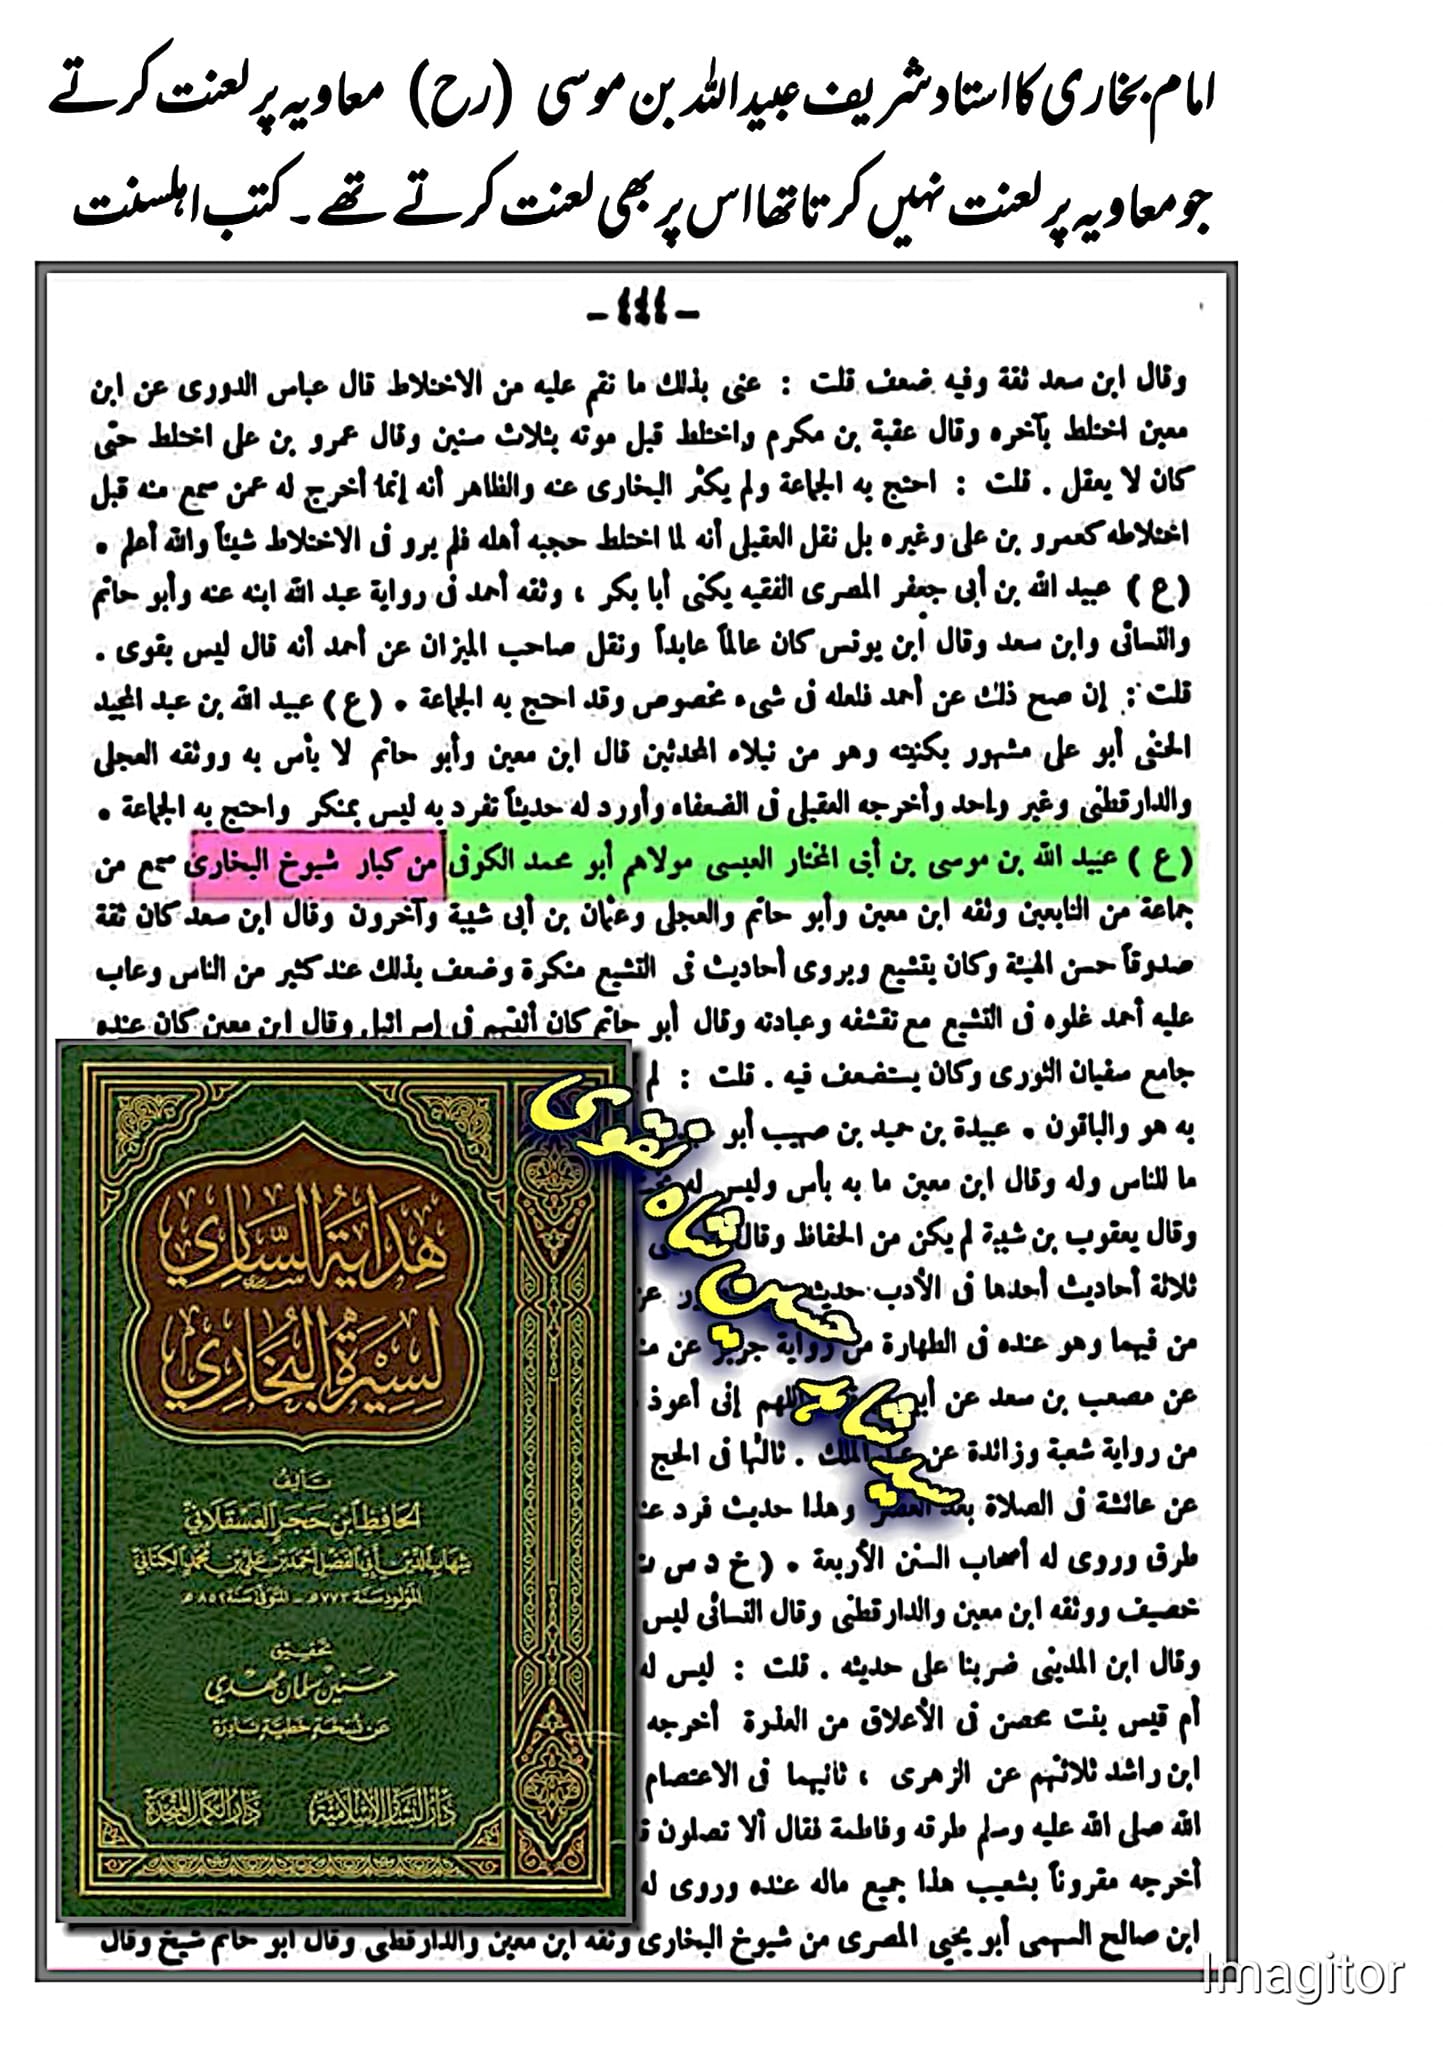 امام بخاری کا استاد شریف عبید اللہ بن موسی (رح) معاویہ پر لعنت کرتے
جو معاویہ پر لعنت نہیں کرتا تھا اس پر بھی لعنت کرتے تھے ۔ کتب اہلسنت
- ٤٤٤ -
وقال ابن سعد ثقة وفيه ضعف قلت : عنى بذلك ما نقم عليه من الاختلاط قال عباس الدورى عن ابن
معين اختلط بآخره وقال عقبة بن مكرم واختلط قبل موته بثلاث سنين وقال عمرو بن على اختلط حتى
كان لا يعقل . قلت : احتج به الجماعة ولم يكثر البخارى عنه والظاهر أنه إنما أخرج له عمن سمع منه قبل
اختلاطه كعمرو بن على وغيره بل نقل العقيلى أنه لما اختلط حجبه أهله فلم يرو فى الاختلاط شيئاً والله أعلم .
(ع) عبيد الله بن أبى جعفر المصرى الفقيه يكنى أبا بكر ، وثقه أحمد فى رواية عبد الله ابنه عنه وأبو حاتم
والنسائى وابن سعد وقال ابن يونس كان عالماً عابداً ونقل صاحب الميزان عن أحمد أنه قال ليس بقوى .
قلت : إن صح ذلك عن أحمد فلعله فى شىء مخصوص وقد احتج به الجماعة . (ع) عبيد الله بن عبد المجيد
الحنفى أبو على مشهور بكنيته وهو من نبلاء المحدثين قال ابن معين وأبو حاتم لا بأس به ووثقه العجلى
والدارقطنى وغير واحد وأخرجه العقيلى فى الضعفاء وأورد له حديثاً تفرد به ليس بمنكر واحتج به الجماعة .
(ع) عبيد الله بن موسى بن أبى المختار العبسى مولاهم أبو محمد الكوفى من كبار شيوخ البخارى سمع من
جماعة من التابعين وثقه ابن معين وأبو حاتم والعجلى وعثمان بن أبى شيبة وآخرون وقال ابن سعد كان ثقة
صدوقاً حسن الهيئة وكان يتشيع ويروى أحاديث فى التشيع منكرة وضعف بذلك عند كثير من الناس وعاب
عليه أحمد غلوه فى التشيع مع تقشفه وعبادته وقال أبو حاتم كان أثبتهم فى إسرائيل وقال ابن معين كان عنده
جامع سفيان الثورى وكان يستضعف فيه . قلت : لم
به هو والباقون . عبيدة بن حميد بن صهيب أبو
ما للناس وله وقال ابن معين ما به بأس وليس له
وقال يعقوب بن شيبة لم يكن من الحفاظ وقال
ثلاثة أحاديث أحدها فى الأدب حديثه
من فيهما وهو عنده فى الطهارة من رواية جرير عن
عن مصعب بن سعد عن أبيه اللهم إنى أعوذ
من رواية شعبة وزائدة عن عبد الملك . ثالثها فى الحج
عن عائشة فى الصلاة بعد العصر وهذا حديث فرد
طرق وروى له أصحاب السنن الأربعة . (خ د س
خصيف ووثقه ابن معين والدارقطنى وقال النسائى ليس
وقال ابن المدينى ضربنا على حديثه . قلت : ليس له
أم قيس بنت محصن فى الأعلاق من العذرة أخرجه
ابن راشد ثلاثتهم عن الزهرى ، ثانيهما فى الاعتصام
الله صلى الله عليه وسلم طرقه وفاطمة فقال ألا تصلون
أخرجه مقروناً بشعيب هذا جميع ماله عنده وروى له
ابن صالح السهمى أبو يحيى المصرى من شيوخ البخارى وثقه ابن معين والدارقطنى وقال أبو حاتم شيخ وقال
هداية الساري
لسيرة البخاري
تأليف
الحافظ ابن حجر العسقلاني
شهاب الدين أبي الفضل أحمد بن علي بن محمد الكناني
المولود سنة ٧٧٣هـ - المتوفى سنة ٨٥٢هـ
تحقيق
حسنين سلمان مهدي
عن نسخة خطية نادرة
دار البشائر الإسلامية
دار الكمال المتحدة
سید شاہد حسین شاہ نقوی
Imagitor